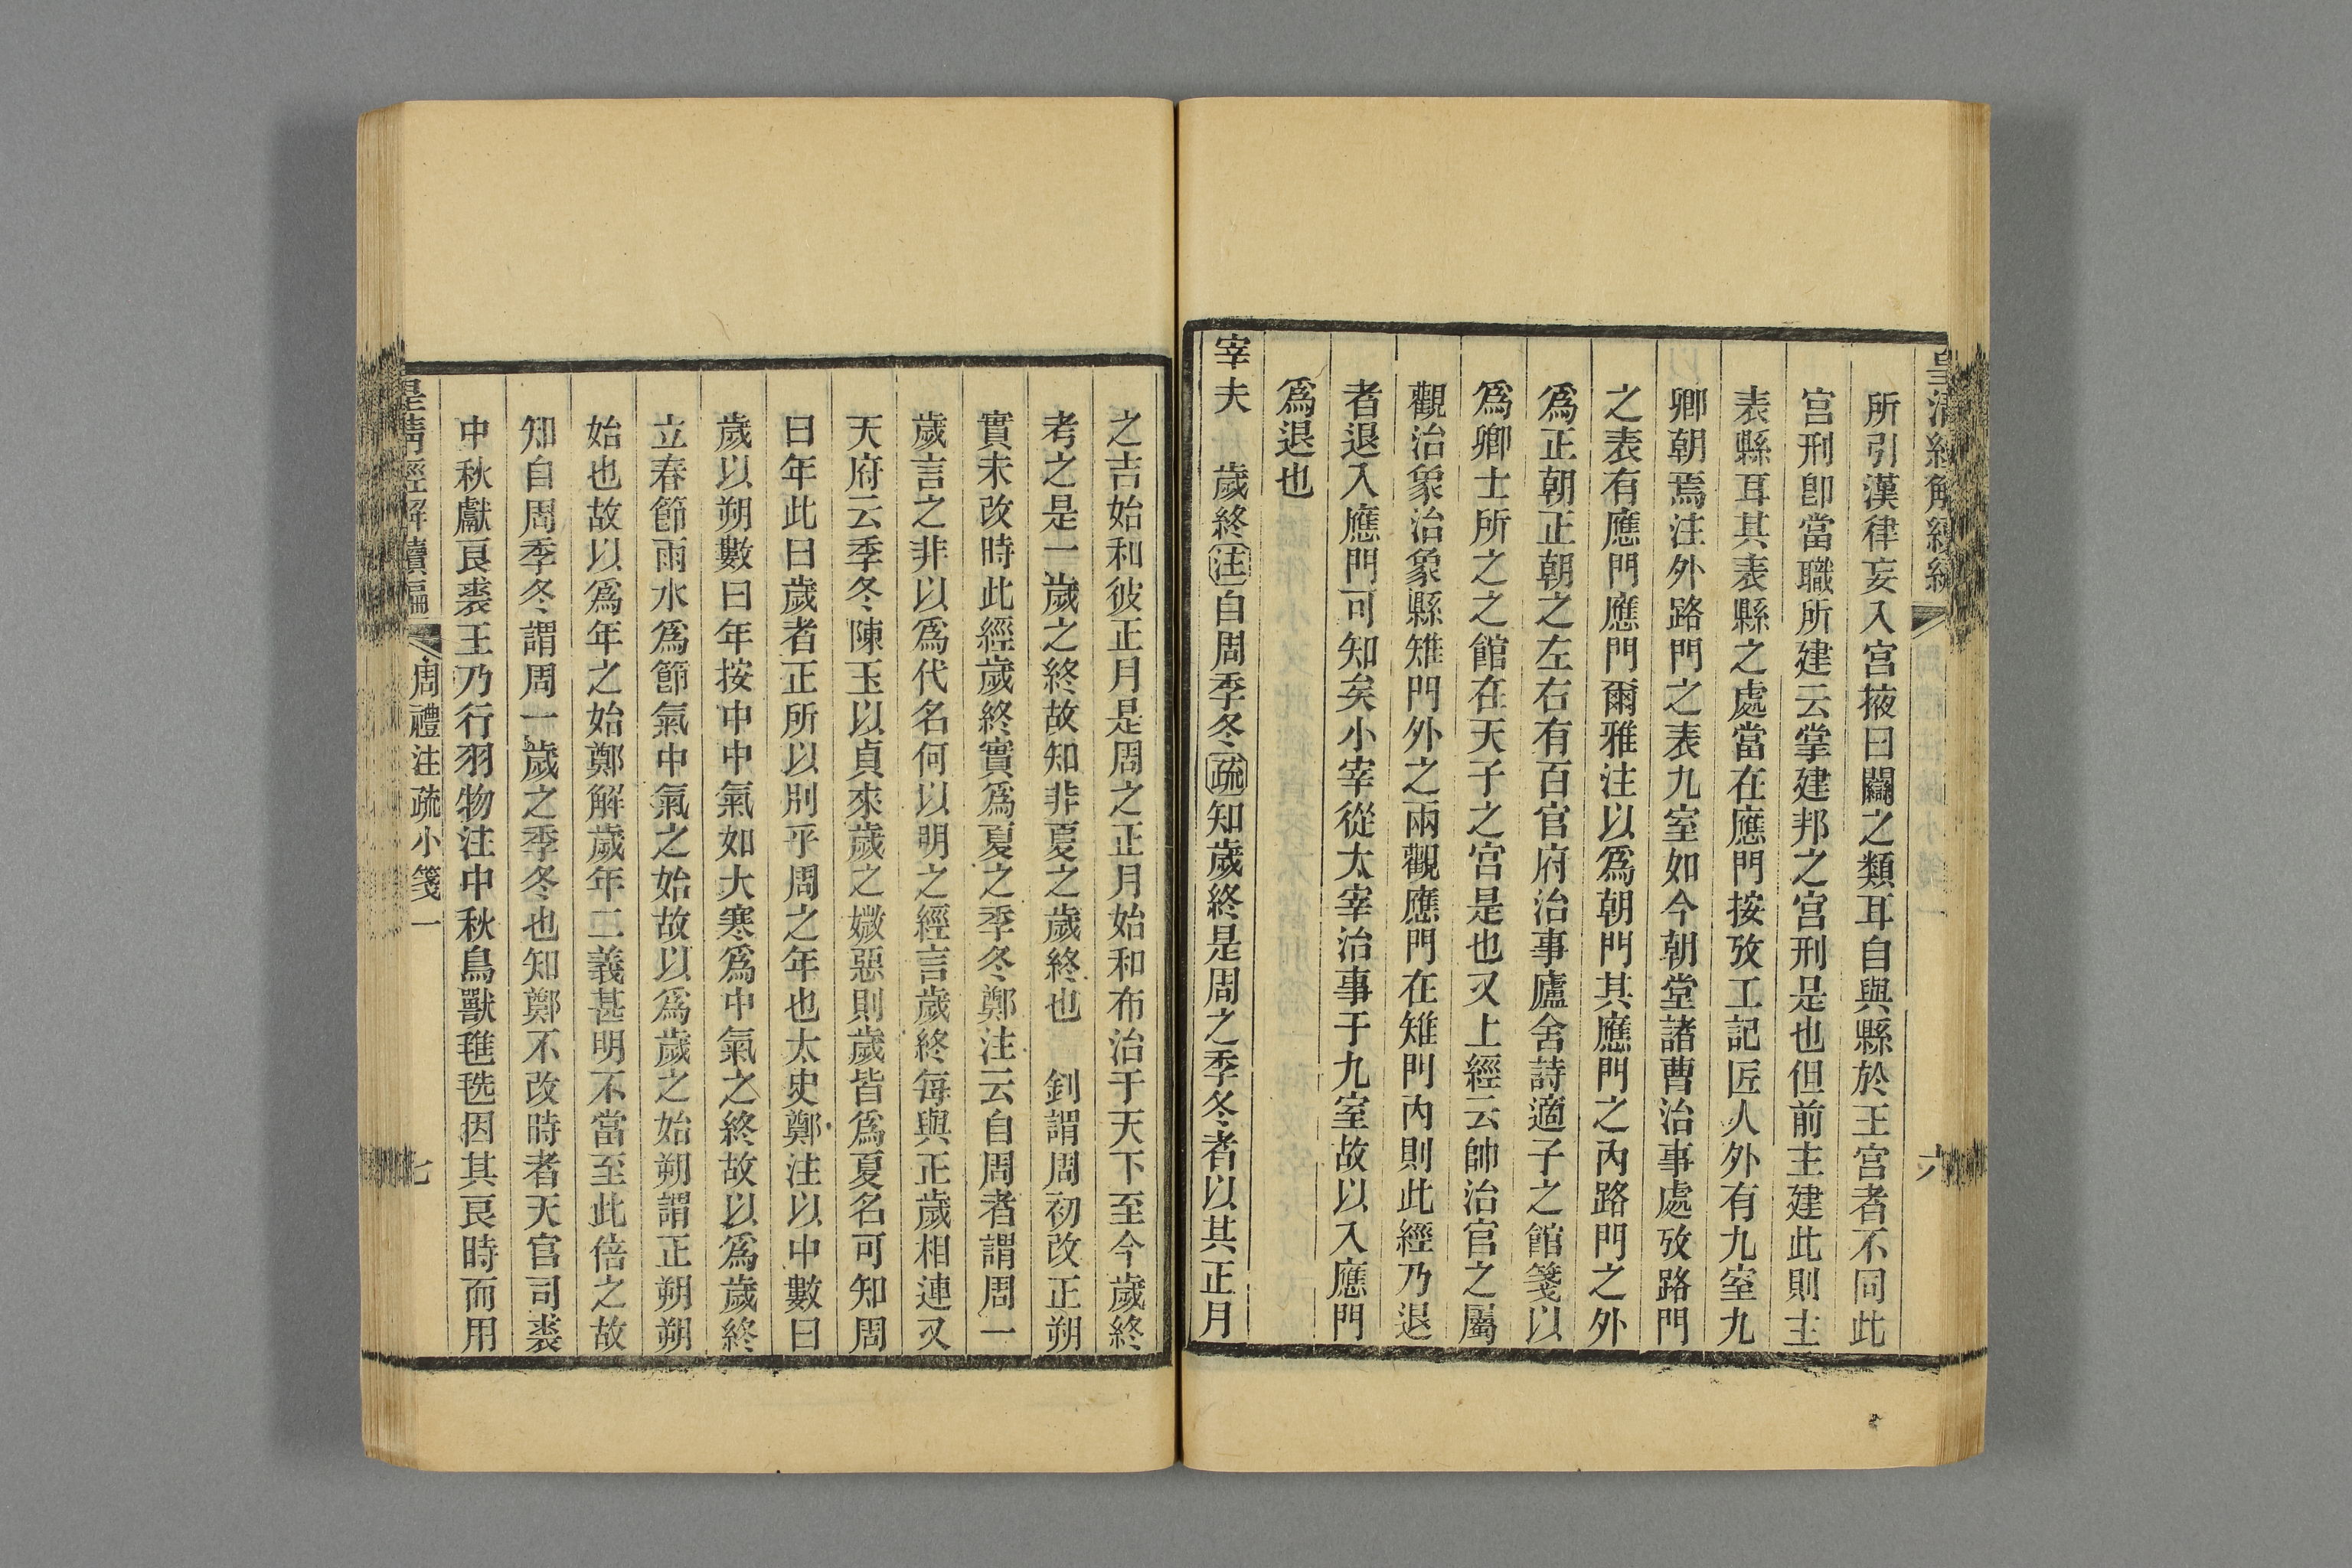 皇清經解續編
六
所引漢律妄入宫掖曰闌之類耳自與縣於王宮者不同此
宫刑卽當職所建云掌建邦之宫刑是也但前主建此則主
表縣耳其表縣之處當在應門按攷工記匠人外有九室九
卿朝焉注外路門之表九室如今朝堂諸曹治事處攷路門
之表有應門應門爾雅注以爲朝門其應門之內路門之外
爲正朝正朝之左右有百官府治事廬舍詩適子之館箋以
爲卿士所之之館在天子之宮是也又上經云帥治官之屬
觀治象治象縣雉門外之兩觀應門在雉門內則此經乃退
者退入應門可知矣小宰從太宰治事于九室故以入應門
爲退也
宰夫 歲終注自周季冬疏知歲終是周之季冬者以其正月
之吉始和彼正月是周之正月始和布治于天下至今歲終
考之是一歲之終故知非夏之歲終也 釗謂周初改正朔
實未改時此經歲終實爲夏之季冬鄭注云自周者謂周一
歲言之非以爲代名何以明之經言歲終每與正歲相連又
天府云季冬陳玉以貞來歲之媺惡則歲皆爲夏名可知周
曰年此曰歲者正所以別乎周之年也太史鄭注以中數曰
歲以朔數曰年按中中氣如大寒爲中氣之終故以爲歲終
立春節雨水爲節氣中氣之始故以爲歲之始朔謂正朔朔
始也故以爲年之始鄭解歲年二義甚明不當至此倍之故
知自周季冬謂周一歲之季冬也知鄭不改時者天官司裘
中秋獻良裘王乃行羽物注中秋鳥獸毨毨因其良時而用
皇清經解續編
周禮注疏小箋一
七